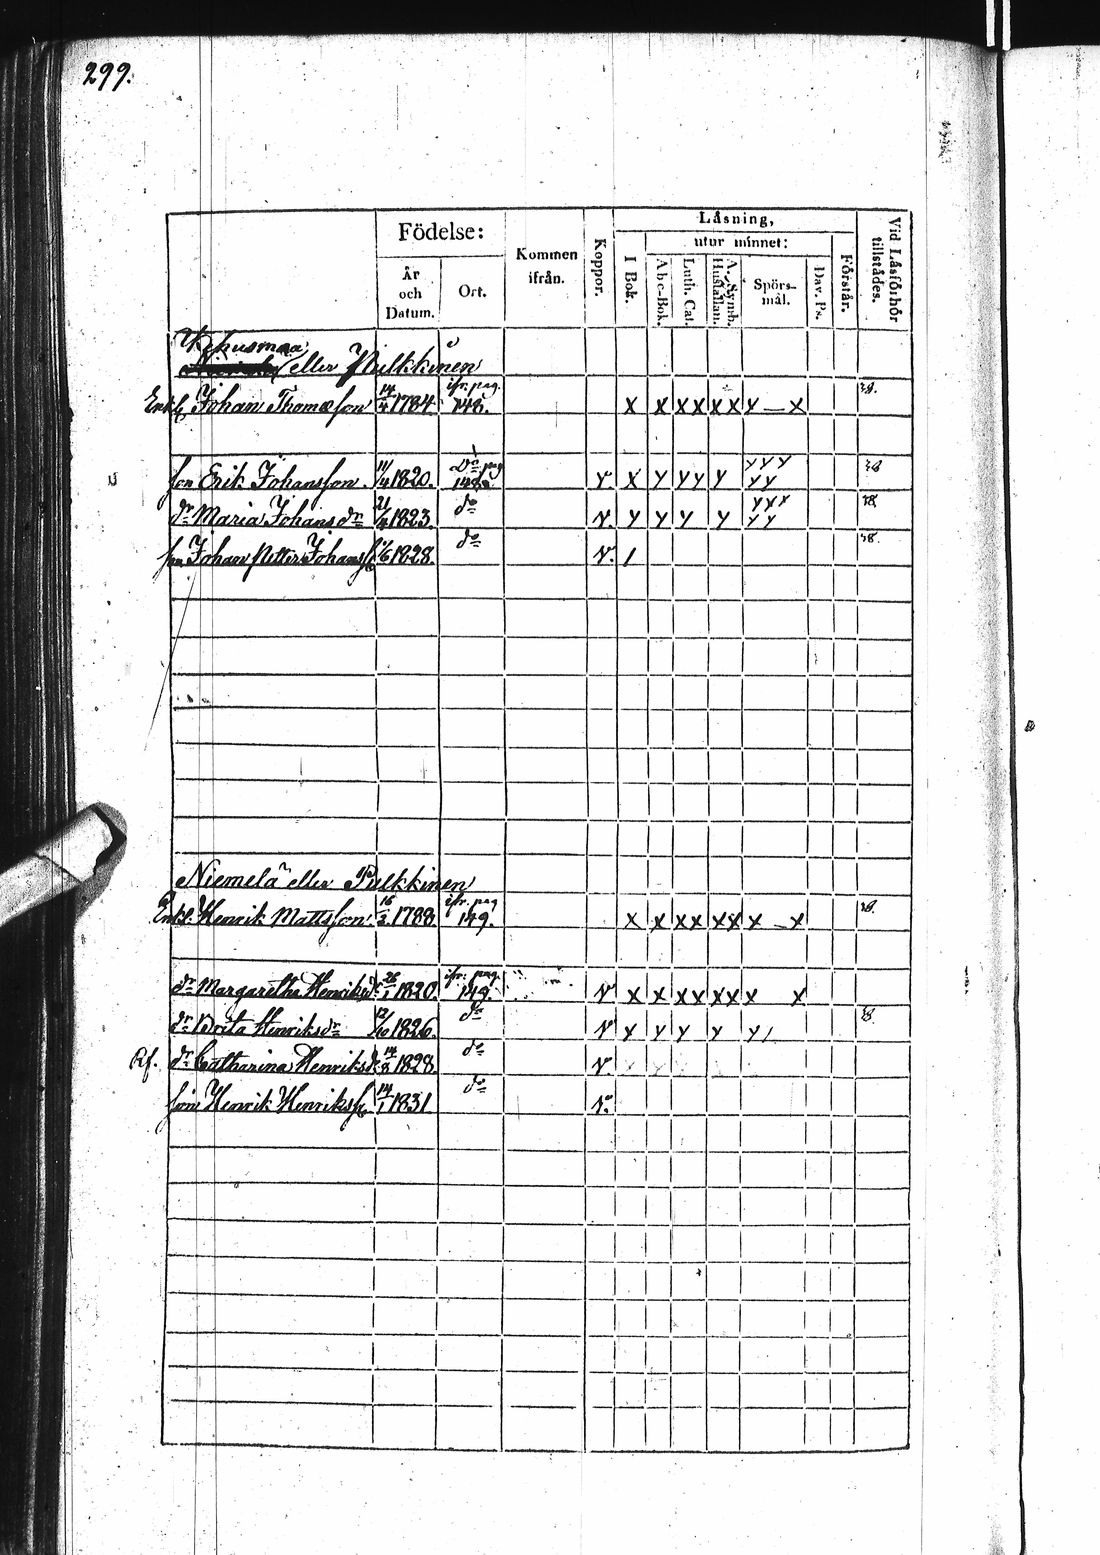 299.
Läsning,
Födelse:
utur minnet:
Kommen ifrån.
Koppor.
I Bok.
Abc-Bok.
Luth. Cat.
A. Symb. Hustaflan.
Spörs-mål.
Dav. Ps.
Förstår.
Vid Läsförhör tillstädes.
År och Datum.
Ort.
eller Pulkkinen
Enkl. Johan Thomæsson 14/4 1784. ifr. pag. 148. X X XX XX X — X 38.
son Erik Johansson. 11/4 1820. Do pag 148. V. X Y YY Y YYY YY 38
dr Maria Johansdr 21/4 1823. do V. Y Y Y Y YYY YY 38.
son Johan Petter Johanss. 1/6 1828. do V. / 38.
Niemelä eller Pulkkinen
Enkl. Henrik Mattsson. 16/3 1788. ifr. pag 149. X X XX XX X — X 38.
dr Margaretha Henriksdr 26/1 1820. ifr. pag. 149. V X X XX XX X X
dr Brita Henriksdr 12/10 1826. do V Y Y Y Y Y / 38.
Rf. dr Catharina Henriksdr 14/8 1828. do V
son Henrik Henrikss. 14/1 1831 do V.